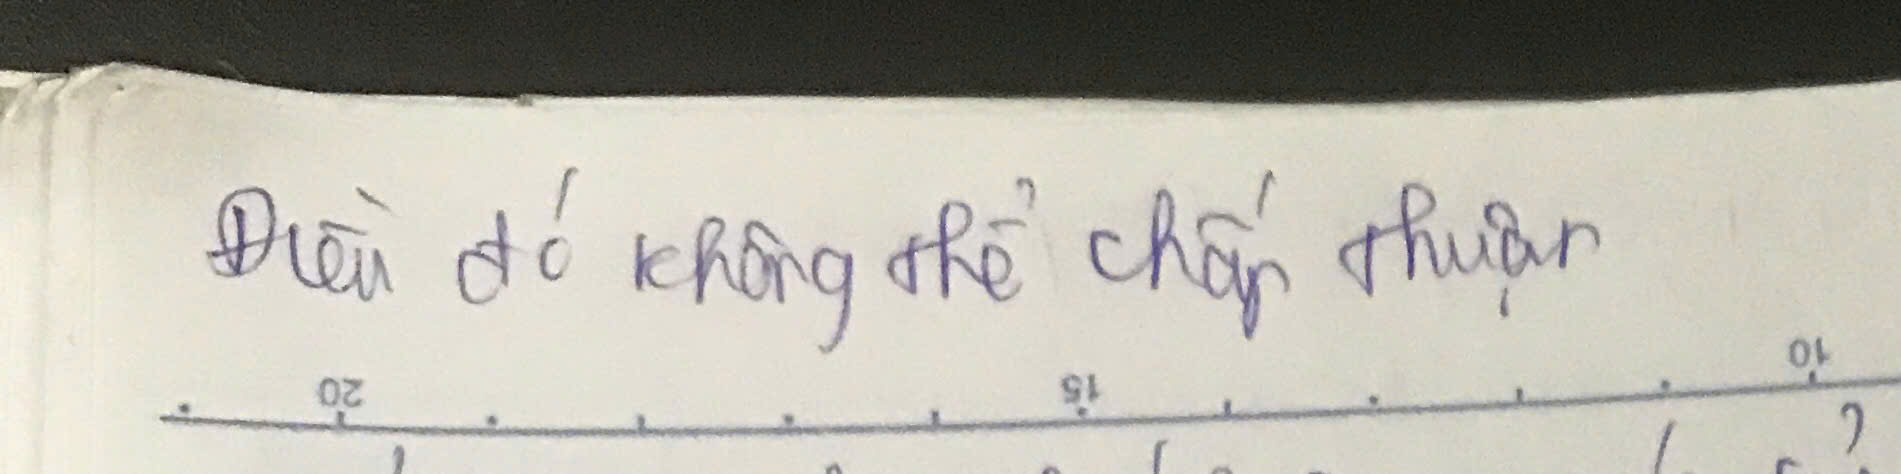 Điều đó không thể chấp thuận
20 15 10